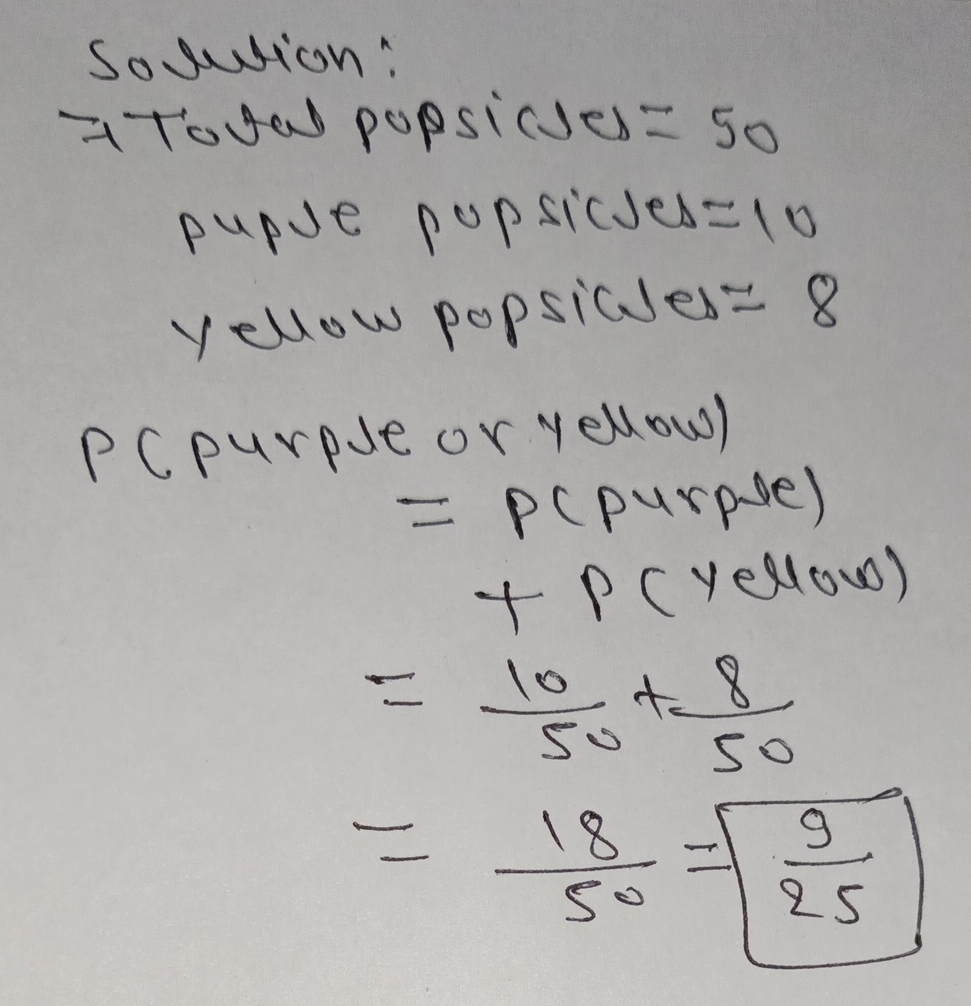 Solution:
⇒ Total popsicles = 50
pupле popsicles = 10
yellow popsicles = 8
P(purple or yellow)
= P(purple)
+ P(yellow)
= 10/50 + 8/50
= 18/50 = 9/25